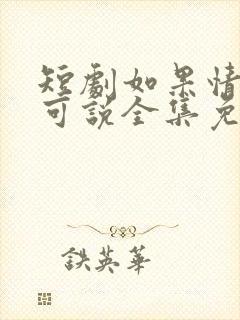 短劇如果情
可說全集免
鉄英華